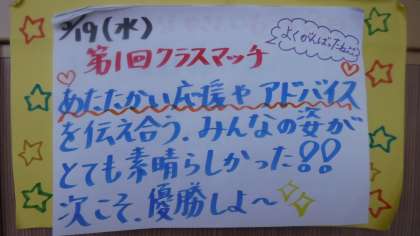 9/19(水)
よくがんばったね!!
第1回クラスマッチ
あたたかい応援やアドバイス
を伝え合う、みんなの姿が
とても素晴らしかった!!
次こそ、優勝しよ〜